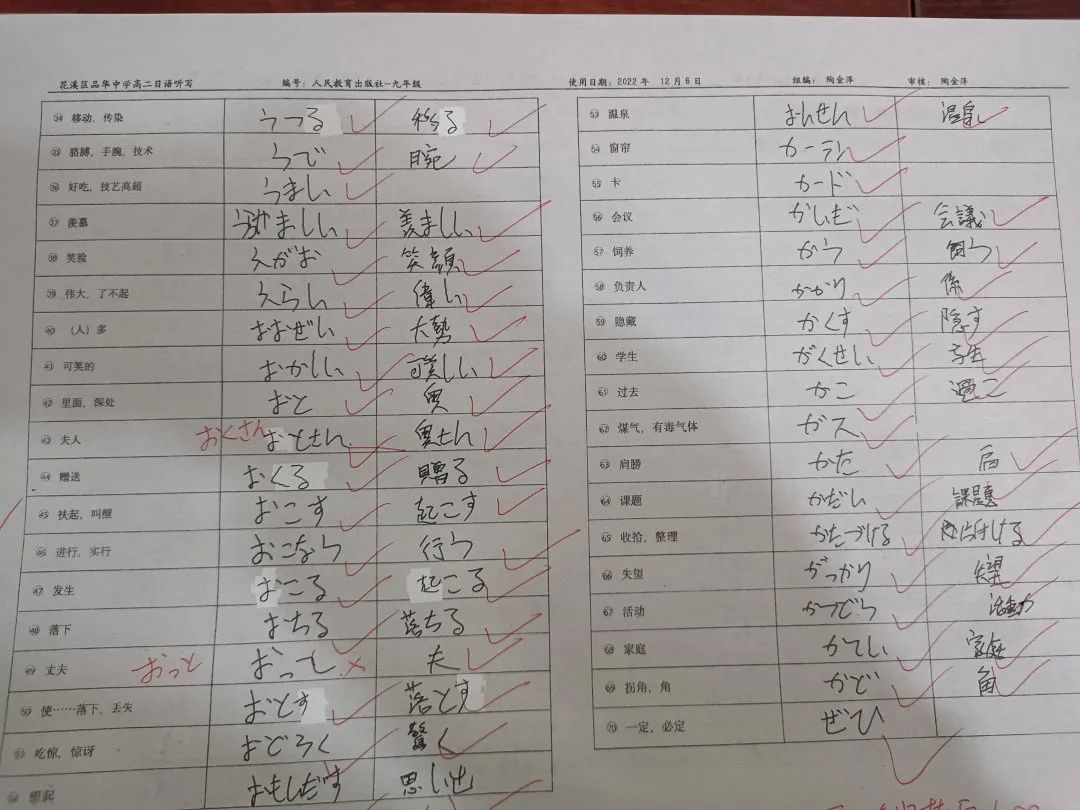 花溪区品隼中学高二日语听写 编号：人民教育出版社--九年级 使用日期：2022 年 12 月 6 日 组编： 陶金萍 审核： 陶金萍
㉞ 移动，传染 うつる 移る
㉟ 胳膊，手腕，技术 うで 腕
㊱ 好吃，技艺高超 うまい
㊲ 羡慕 ましい 羨ましい
㊳ 笑脸 えがお 笑顔
㊴ 伟大，了不起 えらい 偉い
㊵ （人）多 おおぜい 大勢
㊶ 可笑的 おかしい 可笑しい
㊷ 里面，深处 おと 奥
㊸ 夫人 おくさん おとさん 奥さん
㊹ 赠送 おくる 贈る
㊺ 扶起，叫醒 おこす 起こす
㊻ 进行，实行 おこなう 行う
㊼ 发生 おこる 起こる
㊽ 落下 おちる 落ちる
㊾ 丈夫 おっと おっ 夫
㊿ 使……落下，丢失 おとす 落とす
吃惊，惊讶 おどろく 驚く
想起 おもしだす 思し出
53 温泉 おんせん 温泉
54 窗帘 カーテン
55 卡 カード
56 会议 かいぎ 会議
57 饲养 かう 飼う
58 负责人 かかり 係
59 隐藏 かくす 隠す
60 学生 がくせい 学生
61 过去 かこ 過こ
62 煤气，有毒气体 ガス
63 肩膀 かた 肩
64 课题 かだい 課題
65 收拾，整理 かたづける 片付ける
66 失望 がっかり 失望
67 活动 かつどう 活動
68 家庭 かてい 家庭
69 拐角，角 かど 角
70 一定，必定 ぜひ